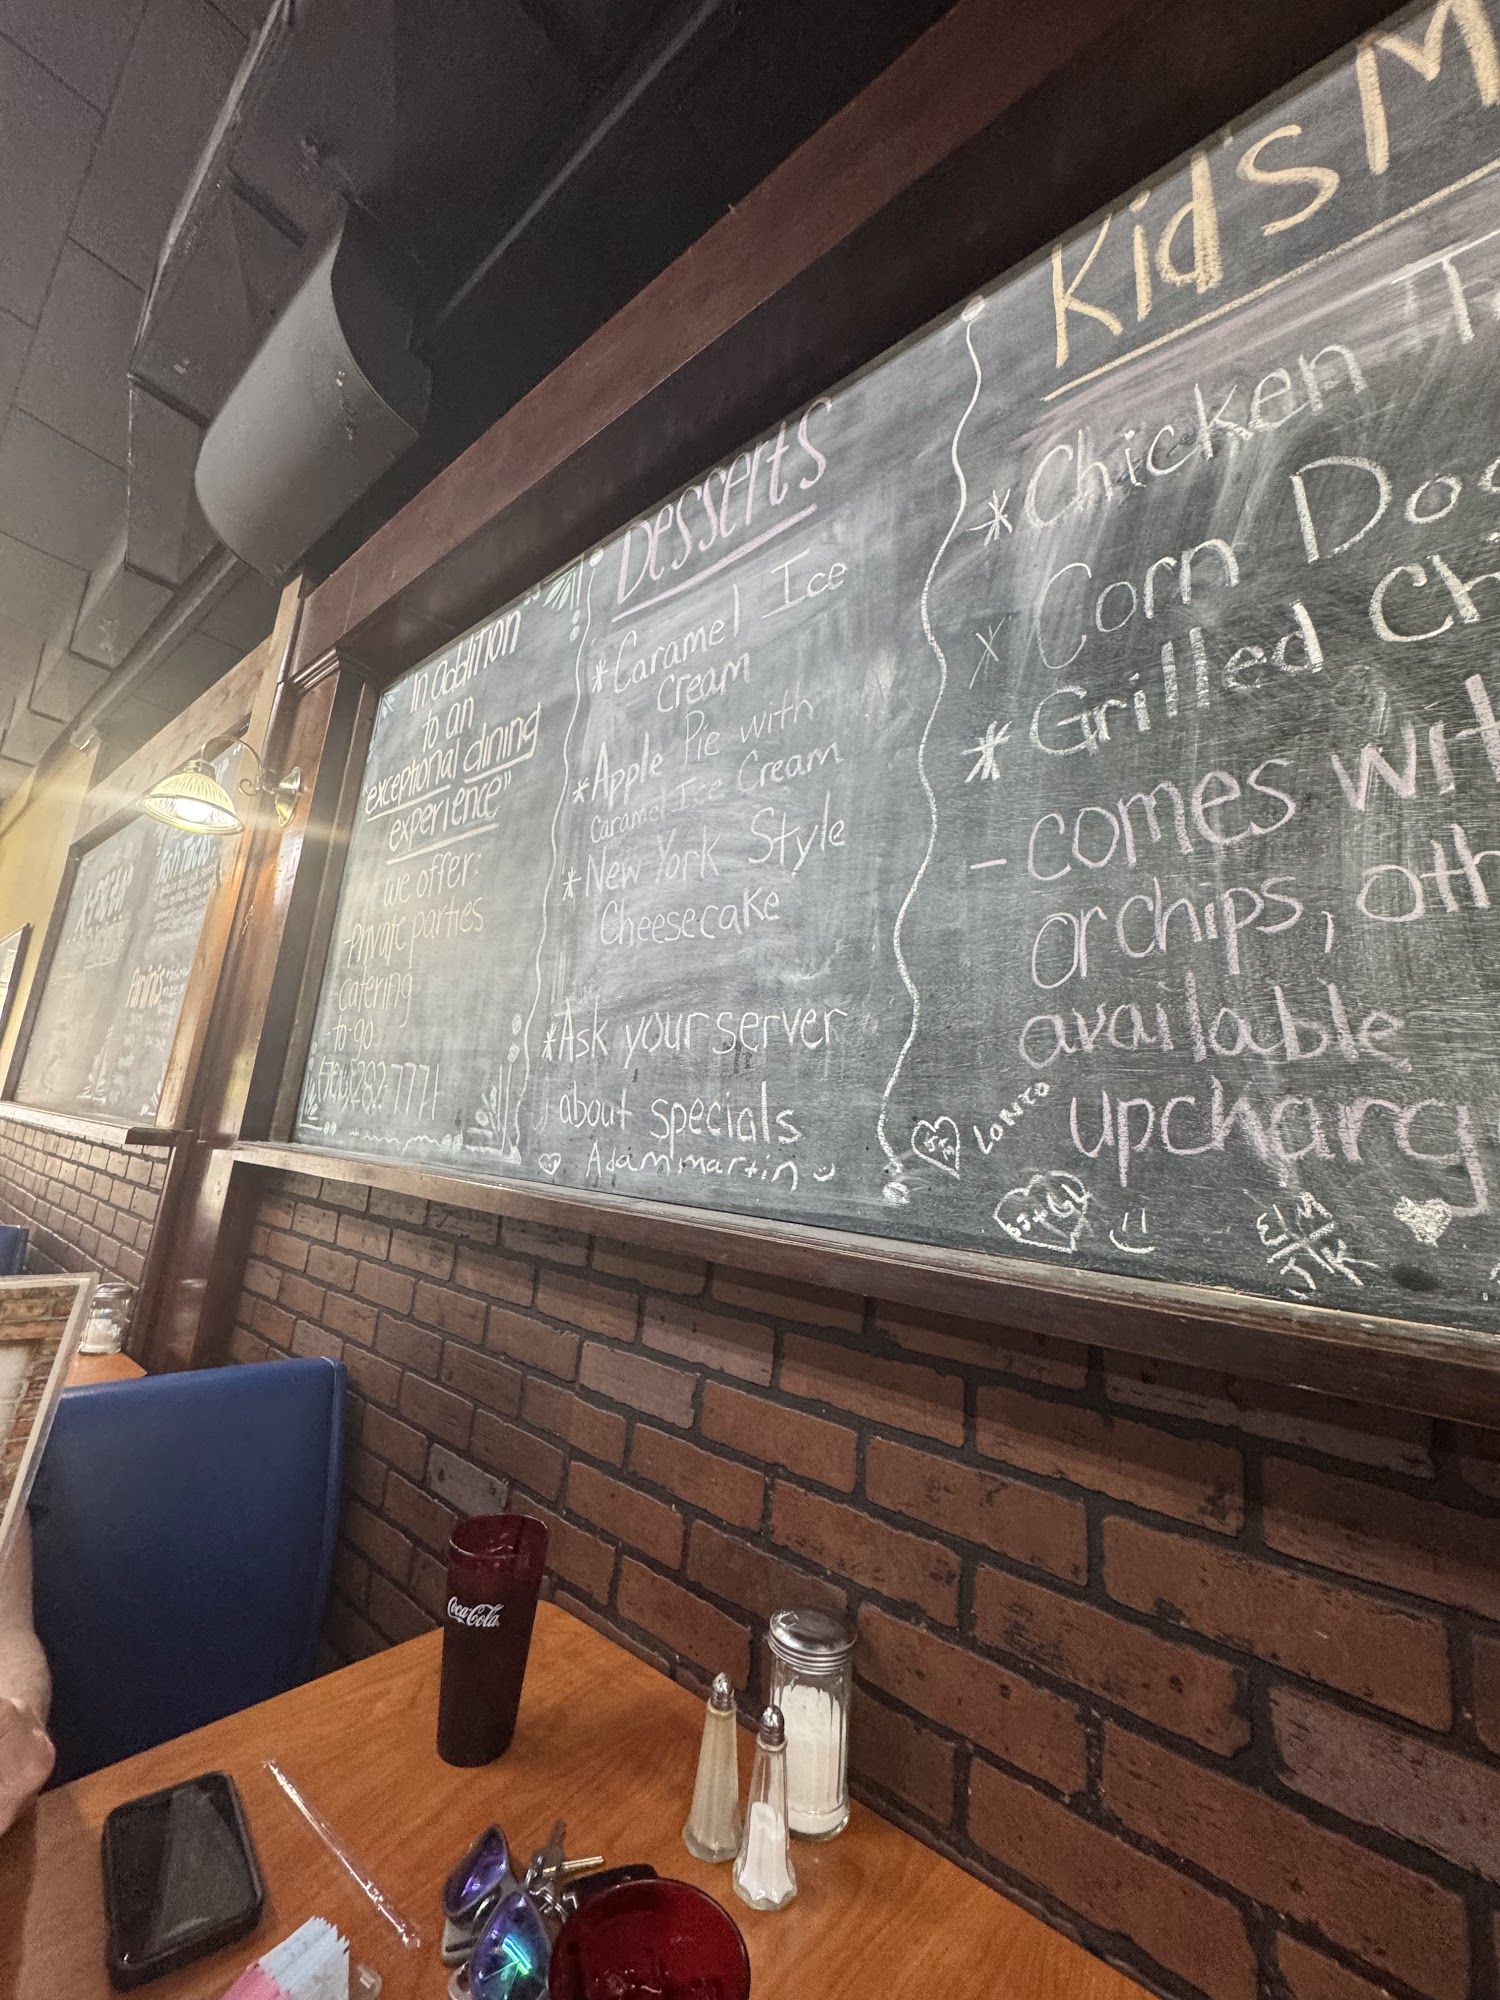 In addition
to an
"exceptional dining
experience"
we offer:
-Private parties
-catering
-to go
282-7771
Desserts
*Caramel Ice
Cream
*Apple Pie with
Caramel Ice Cream
*New York Style
Cheesecake
*Ask your server
about specials
Adam martin
Kid's M
*Chicken T
*Corn Do
*Grilled Ch
-comes wit
or chips, oth
available
upcharg
LONZO
E M
J K
Fish Tacos
Paninis
Coca-Cola